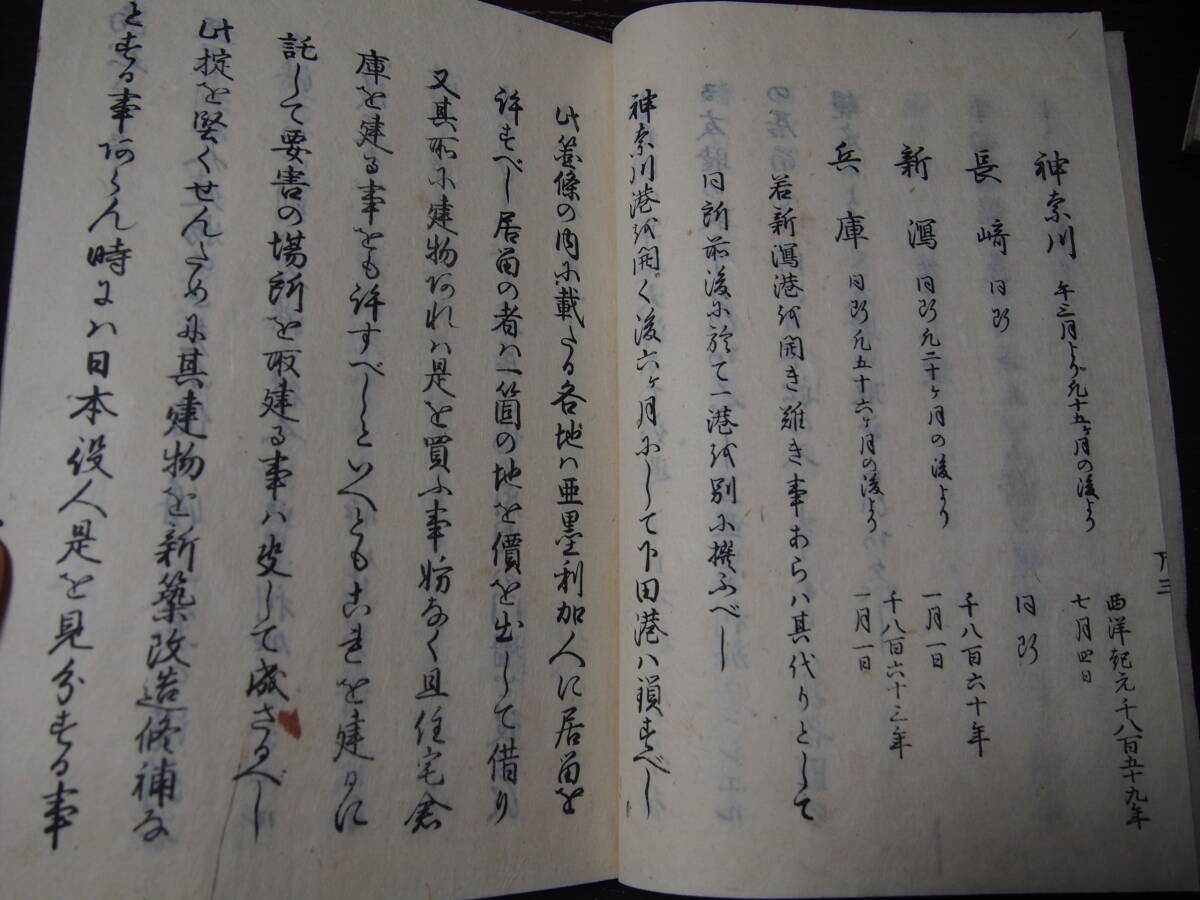 下三
神奈川 午三月より凡十五ヶ月の後より 西洋紀元千八百五十九年七月四日
長崎 同断 同断
新潟 同断凡二十ヶ月の後より 千八百六十年一月一日
兵庫 同断凡五十六ヶ月の後より 千八百六十三年一月一日
若新潟港を開き難き事あらハ其代りとして
同所前後に於て一港を別に撰ふべし
神奈川港を開く後六ヶ月にして下田港ハ鎖すべし
此箇條の内に載たる各地ハ亜墨利加人に居留を
許すべし居留の者ハ一箇の地を價を出して借り
又其所に建物あれハ是を買ふ事妨なく且住宅倉
庫を建る事をも許すべしといへともこれを建るに
託して要害の場所を取建る事ハ决して成さるべし
此掟を堅くせんために其建物を新築改造修補な
とする事あらん時にハ日本役人是を見分する事